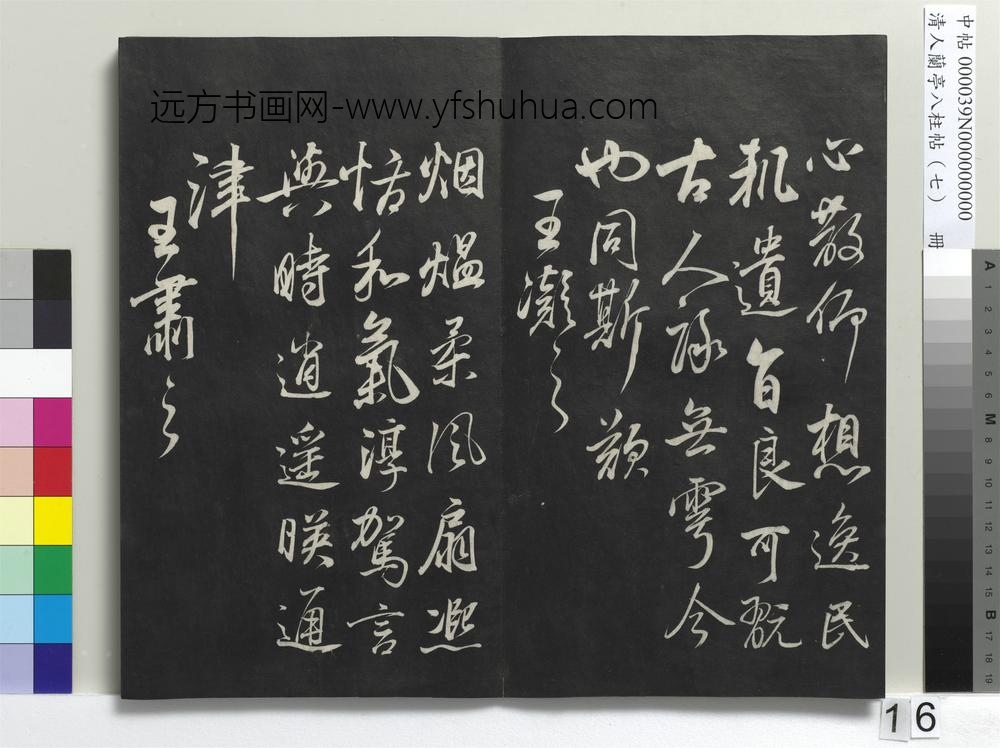 中帖 000039N000000000
清人蘭亭八柱帖（七） 冊
远方书画网-www.yfshuhua.com
心散仰想逸民
軌遺音良可翫
古人詠無雩今
也同斯歎
王凝之
烟熅柔风扇熈
怡和氣淳駕言
興時逍遥暎通
津
王肅之
16
A
1
2
3
4
5
6
M
8
9
10
11
12
13
14
15
B
17
18
19